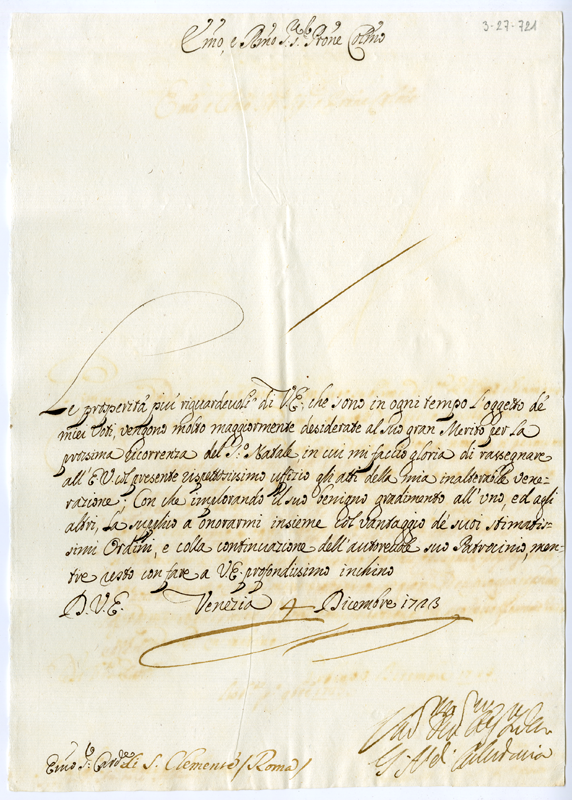 3-27-721
Emo, e Rmo Sig.r Prone Colmo
Le prosperità più riguardevoli di V.E., che sono in ogni tempo l'oggetto de
miei Voti, vengono molto maggiormente desiderate al suo gran Merito per la
prossima ricorrenza del S.o Natale in cui mi faccio gloria di rassegnare
all'E.V. col presente rispettosissimo uffizio gli atti della mia inalterabile vene=
razione. Con che implorando il suo benigno gradimento all'uno, ed agli
altri, La supplico a onorarmi insieme col vantaggio de suoi stimatis=
simi Ordini, e colla continuazione dell'autorevole suo Patrocinio, men=
tre resto con fare a V.E. profondissimo inchino
D.V.E. Venezia 4 Dicembre 1723
Emo Sr. Cardle di S. Clemente (Roma)